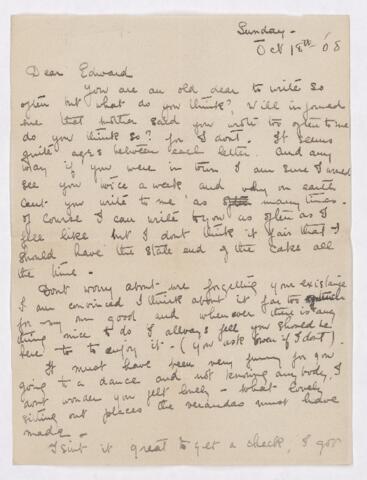 Sunday -
Oct 18th '08
Dear Edward
You are an old dear to write so
often but what do you think?, Will informed
me that mother said you wrote too often to me
do you think so? for I dont. It seems
quite ages between each letter. And any
way if you were in town I am sure I would
see you twice a week and why on earth
cant you write to me as many times -
of course I can write to you as often as I
feel like but I dont think it fair that I
should have the stale end of the cake all
the time -
Dont worry about me forgetting your existance
I am convinced I think about it far too much
for my own good and whenever there is any
thing nice to do I allways feel you should be
here to enjoy it - (you ask Owen if I dont).
It must have been very funny for you
going to a dance and not knowing anybody, I
dont wonder you felt lonely - what lovely
sitting out places the verandas must have
made -
Isint it great to get a check, I got